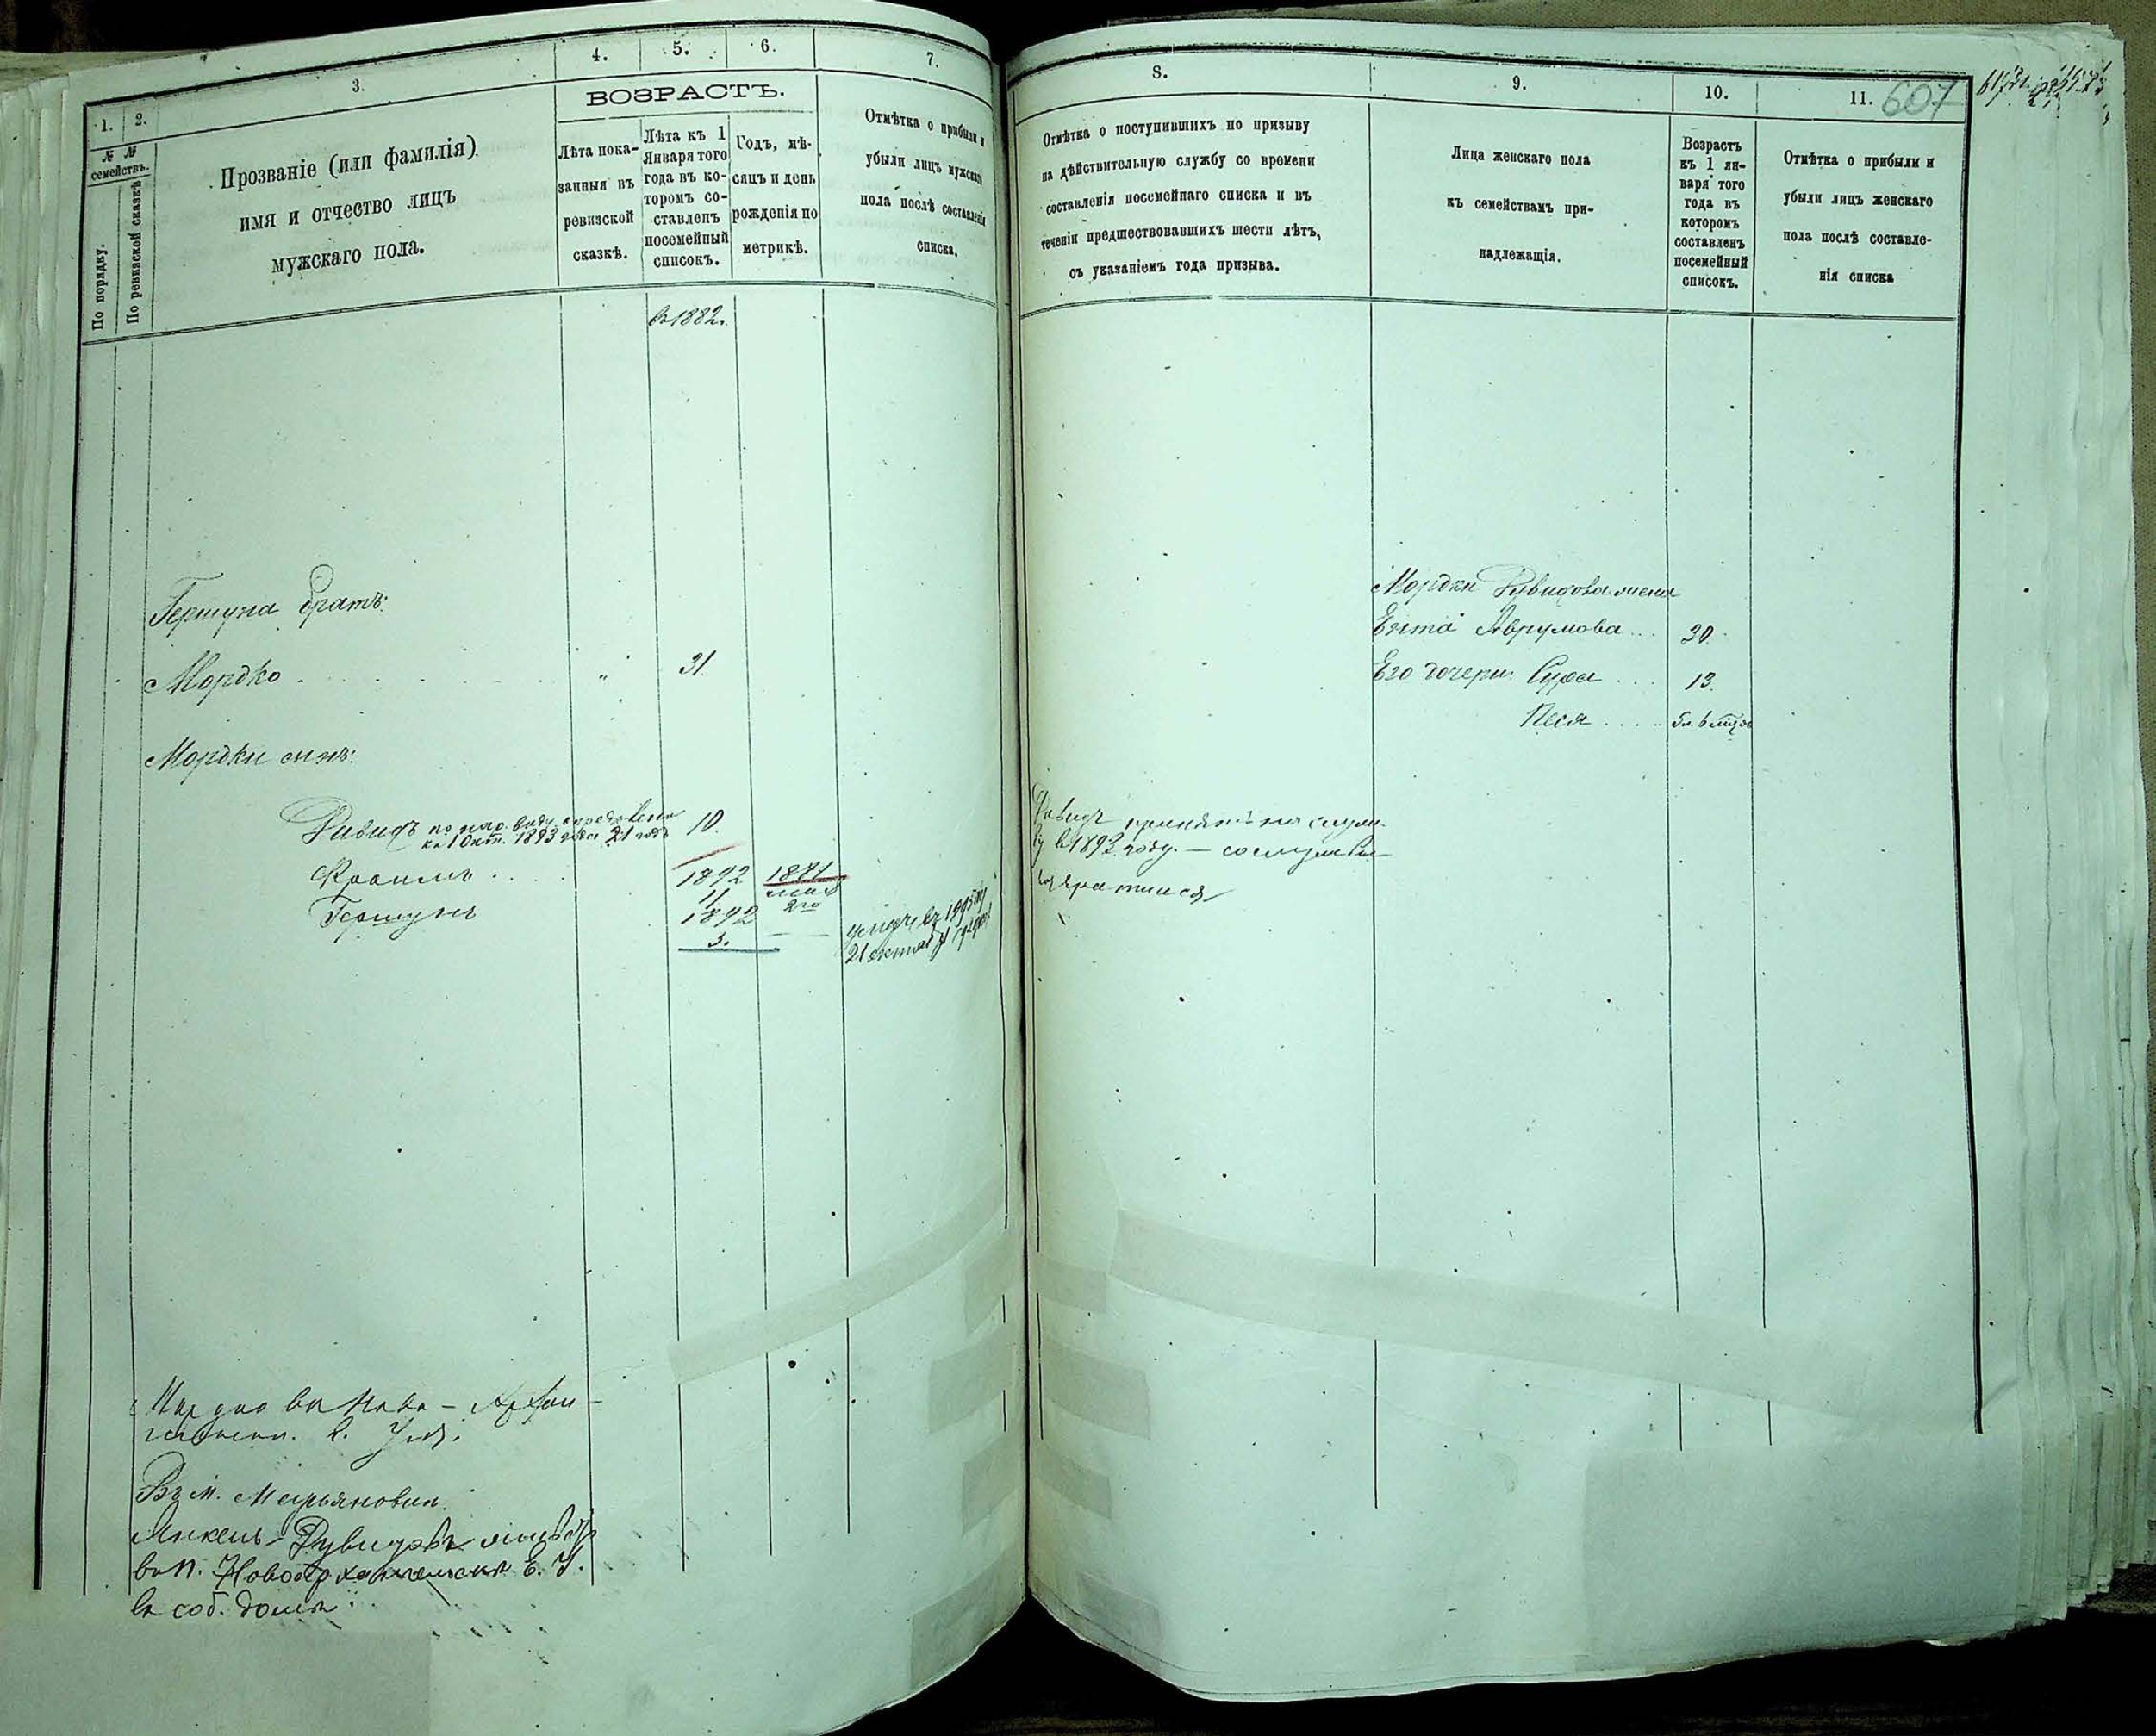 1.
2.
3.
4.
5.
6.
7.
№ №
семействъ.
По порядку.
По ревизской сказкѣ
Прозваніе (или фамилія)
имя и отчество лицъ
мужскаго пола.
ВОЗРАСТЪ.
Лѣта пока-
занныя въ
ревизской
сказкѣ.
Лѣта къ 1
Января того
года въ ко-
торомъ со-
ставленъ
посемейный
списокъ.
Годъ, мѣ-
сяцъ и день
рожденія по
метрикѣ.
Отмѣтка о прибыли и
убыли лицъ мужскаго
пола послѣ составленія
списка.
въ 1882 г.
Гершуна братъ:
Мордко . . . . . . . „ 31.
Мордки сынъ:
Давидъ по нар. виду опредѣлено 10.
къ 1 Окт. 1893 года 21 годъ
Фроимъ . . . 1892 1871
11 мая
Гершунъ 1892 2го
3.
21 октября
Мордко въ Ново-Архан-
гельскѣ. Е. Уѣз.
Въ м. Мерьяновкѣ.
Янкель Дувидовъ живетъ
въ п. Новоархангельскѣ Е. У.
въ соб. домѣ.
8.
9.
10.
11.
607
Отмѣтка о поступившихъ по призыву
на дѣйствительную службу со времени
составленія посемейнаго списка и въ
теченіи предшествовавшихъ шести лѣтъ,
съ указаніемъ года призыва.
Лица женскаго пола
къ семействамъ при-
надлежащія.
Возрастъ
къ 1 ян-
варя того
года въ
которомъ
составленъ
посемейный
списокъ.
Отмѣтка о прибыли и
убыли лицъ женскаго
пола послѣ составле-
нія списка
Мордки Дувидова жена
Ента Аврумова . . . 30.
Его дочери: Сура . . . 13.
Песя . . . . 5 л. 6 мѣс.
Давидъ принятъ на служ-
бу въ 1893 году. — со службы
возвратился